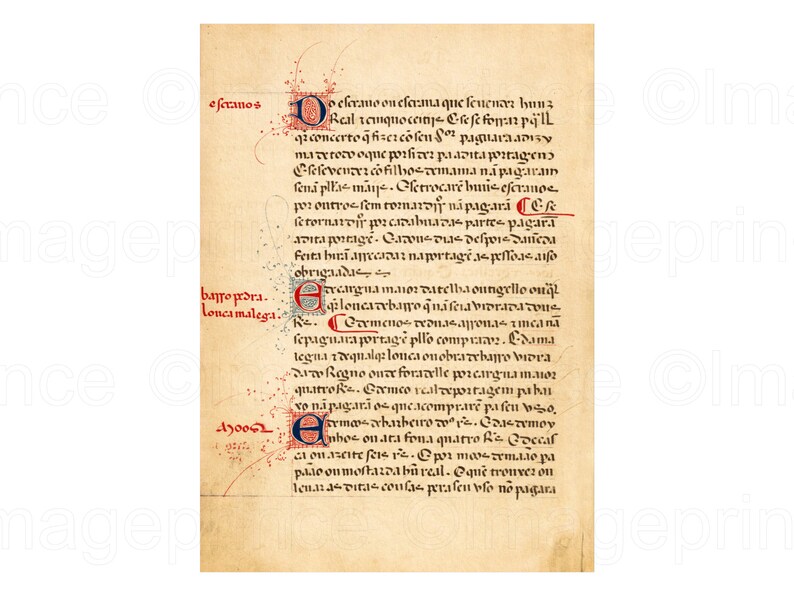 escrauos
Do escrauo ou escraua que se vender hum
Real & cinquo ceitijs E se se forrar p q̃ll
qr concerto q̃ fizer cõ seu sor paguara a diz y
ma de todo o que por si der pa a dita portagem
E se se vender cõ filhos de mama nã pagaram
senã pllas mãijs. E se trocarẽ huũs escrauos
por outros sem tornar dirº nã pagarã E se
se tornar dirº por cada huã das partes pagarã
a dita portagẽ. E a dous dias despois da vẽda
feita hirã arrecadar na portagẽ as pessoas a isso
obrigadas
barro pedra.
louca malega.
E de cargua maior da telha ou tigello ou qlqr
louca de barro q̃ nã seia vidrada dous
Rs. E de menos de duas arrouas & mea nã
se paguara portagẽ pllo comprador. E da ma
legua & de qualqr louca ou obra de barro vidra
da do Regno ou de fora delle por cargua maior
quatro Rs. E de meo real de portagem pa bai
xo nã pagarã os que a comprarẽ pa seu vso.
moos
E de moos de barbeiro dous Rs. E das de moy
nhos ou atafona quatro Rs. E de cas
ca ou azeite seis rs. E por moos de maão pa
paão ou mostarda hũ real. E o que trouxer ou
leuar as ditas cousas pera seu vso nõ pagara
©Imageprince